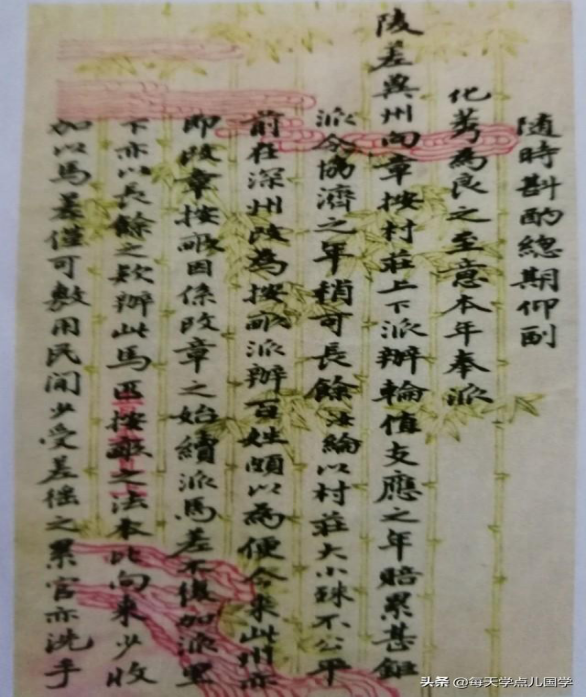 随時斟酌總期仰副
化莠為良之至意本年奉派
陵差與州向章按村莊上下派辦輪值支應之年賠累甚鉅
派令協濟之年稍可長餘法綸以村莊大小殊不公平
前在深州改為按畝派辦百姓頗以為便今來此州亦
即改章按畝因係改章之始續派馬差不復加派里
下亦以長餘之欵辦此馬匹按畝之法本比向來少收
加以馬差僅可敷用民间少受差徭之累官亦洗手
头条 @每天学点儿国学